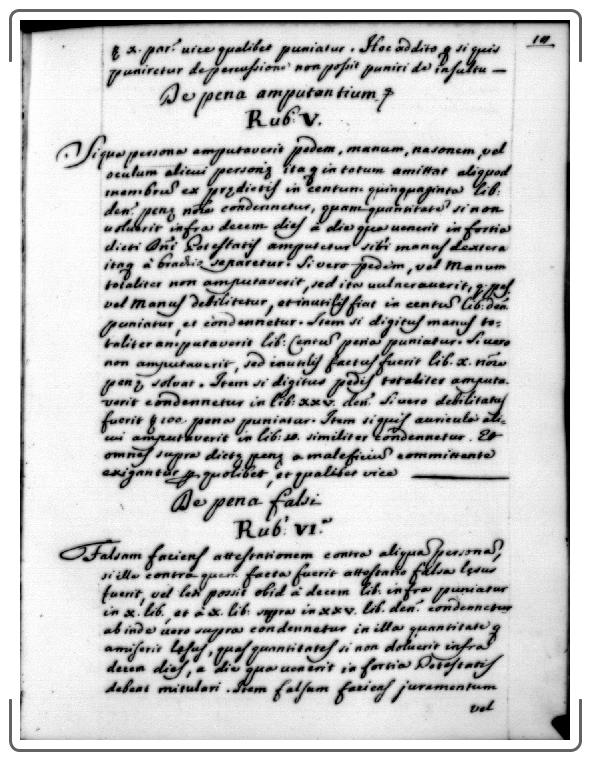 p x. par. vice qualibet puniatur. Hoc addito q si quis
puniretur de percussione non possit puniri de insultu —
De pena amputantium
Rub. V.
Si qua persona amputaverit pedem, manum, nasonem, vel
oculum alicui personæ ita q in totum amittat aliquod
membrũ ex prædictis in centum quinquaginta lib:
den. penæ noĩe condennetur, quam quantitatẽ si non
solverit infra decem dies à die qua venerit in fortia
dicti Dñi Potestatis amputetur sibi manus dextera
itaq à brachio separetur. Si vero pedem, vel Manum
totaliter non amputaverit, sed ita vulneraverit, q pes,
vel Manus debilitetur, et inutilis fiat in centũ lib: deñ.
puniatur, et condennetur. Item si digitus manus to-
taliter amputaverit lib: Centũ pena puniatur. Si vero
non amputaverit, sed inutilis factus fuerit lib. x. noĩe
penæ solvat. Item si digitus pedis totaliter amputa-
verit condennetur in lib: xxv. deñ. Si vero debilitatus
fuerit pena puniatur. Item si quis auricula ali-
cui amputaverit in lib: similiter condennetur. Et
omnes supra dictæ penæ a maleficiũ committente
exigantur p quolibet, et qualibet vice
De pena falsi
Rub. VI.
Falsam faciens attestationem contra aliquã personã,
si illa contra quem facta fuerit attestatio falsa læsus
fuerit, vel lædi possit obid à decem lib. infra puniatur
in x. lib. et à x. lib. supra in xxv. lib. den. condennetur
ab inde vero supra condennetur in illa quantitate q
amiserit læsus, quas quantitates si non solverit infra
decem dies, a die qua venerit in fortia Potestatis
debeat mitulari. Item falsum faciens juramentum
vel